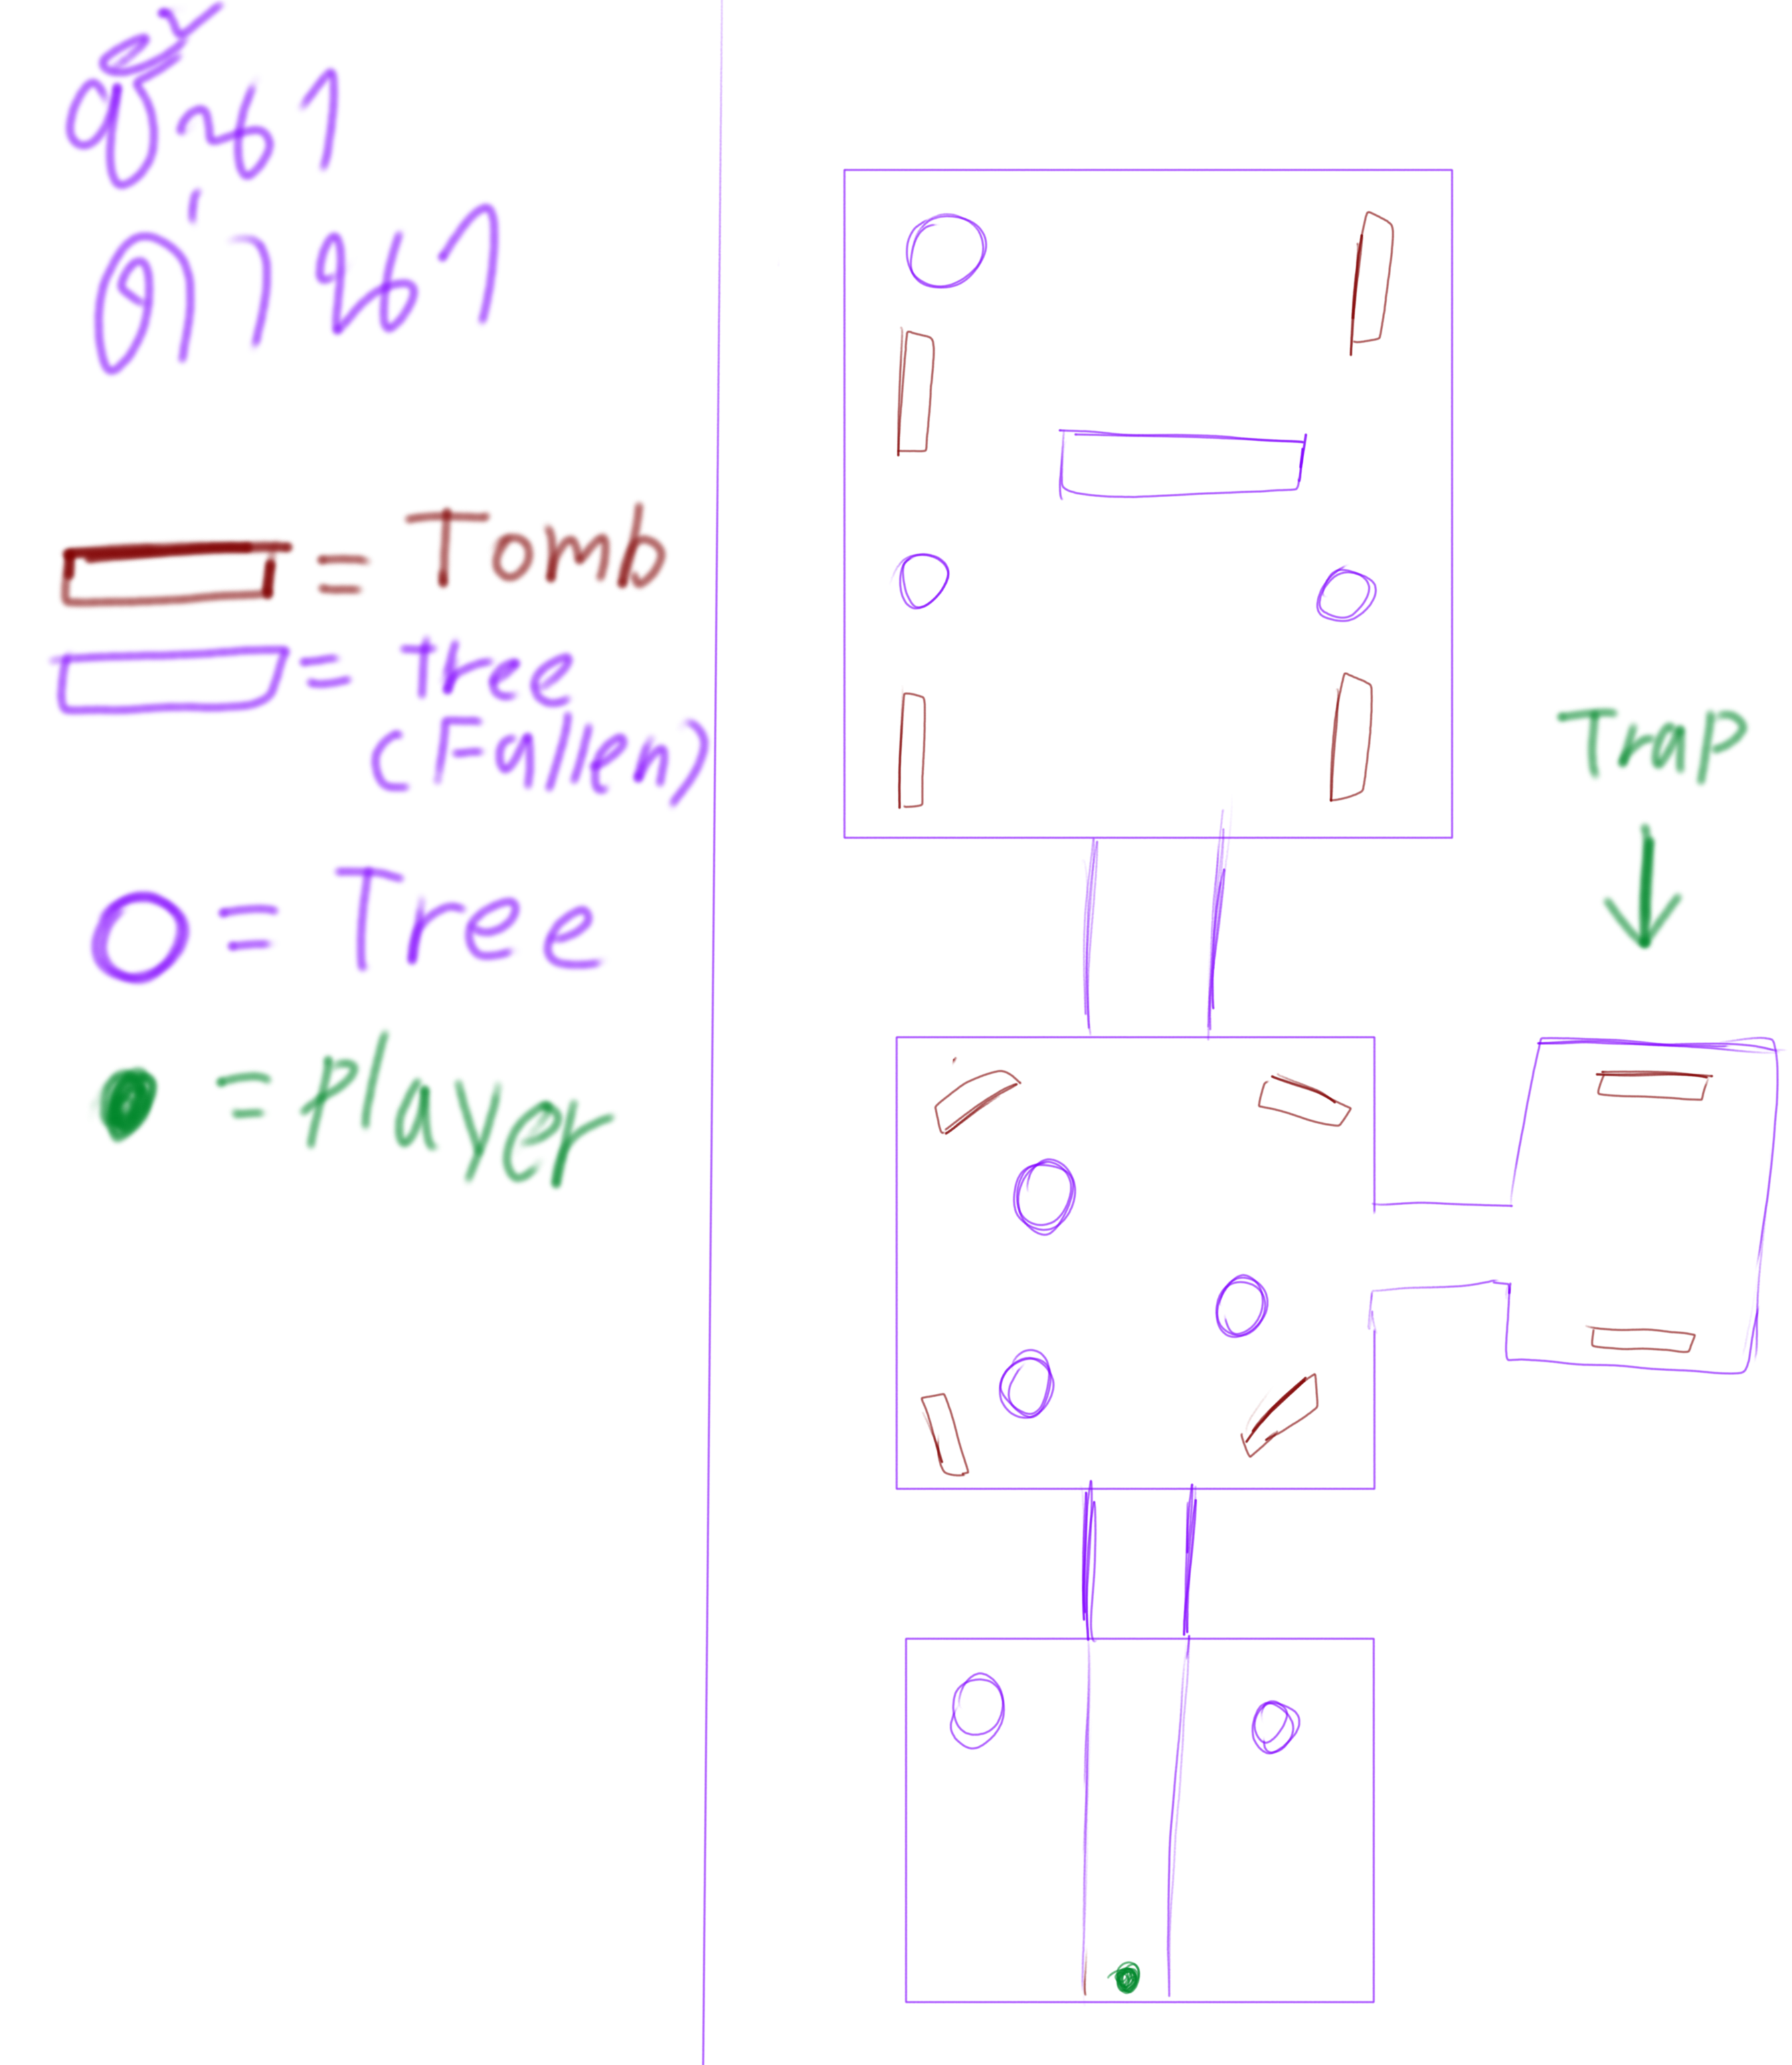 ชั้น 1
ด่าน 1
= Tomb
= tree
(Fallen)
= Tree
= Player
Trap